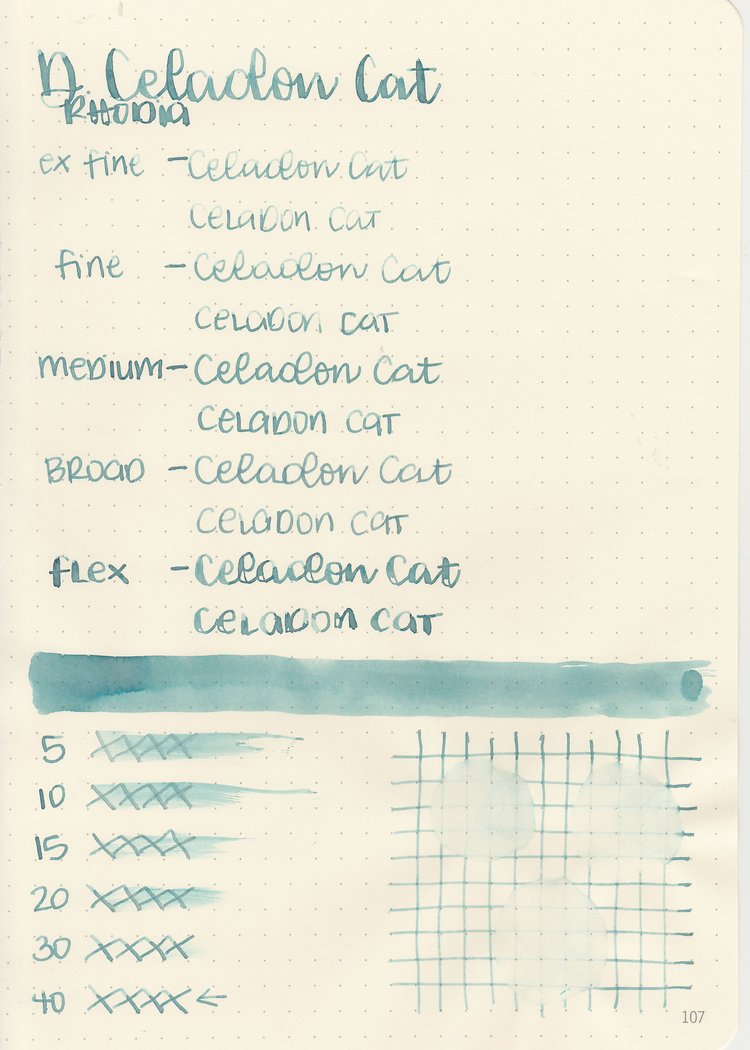 D. Celadon Cat
RHODIA
ex fine - Celadon Cat
CELADON CAT
fine - Celadon Cat
CELADON CAT
MEDIUM - Celadon Cat
CELADON CAT
BROAD - Celadon Cat
CELADON CAT
FLEX - Celadon Cat
CELADON CAT
5 XXXX
10 XXXX
15 XXXX
20 XXXX
30 XXXX
40 XXXX ←
107